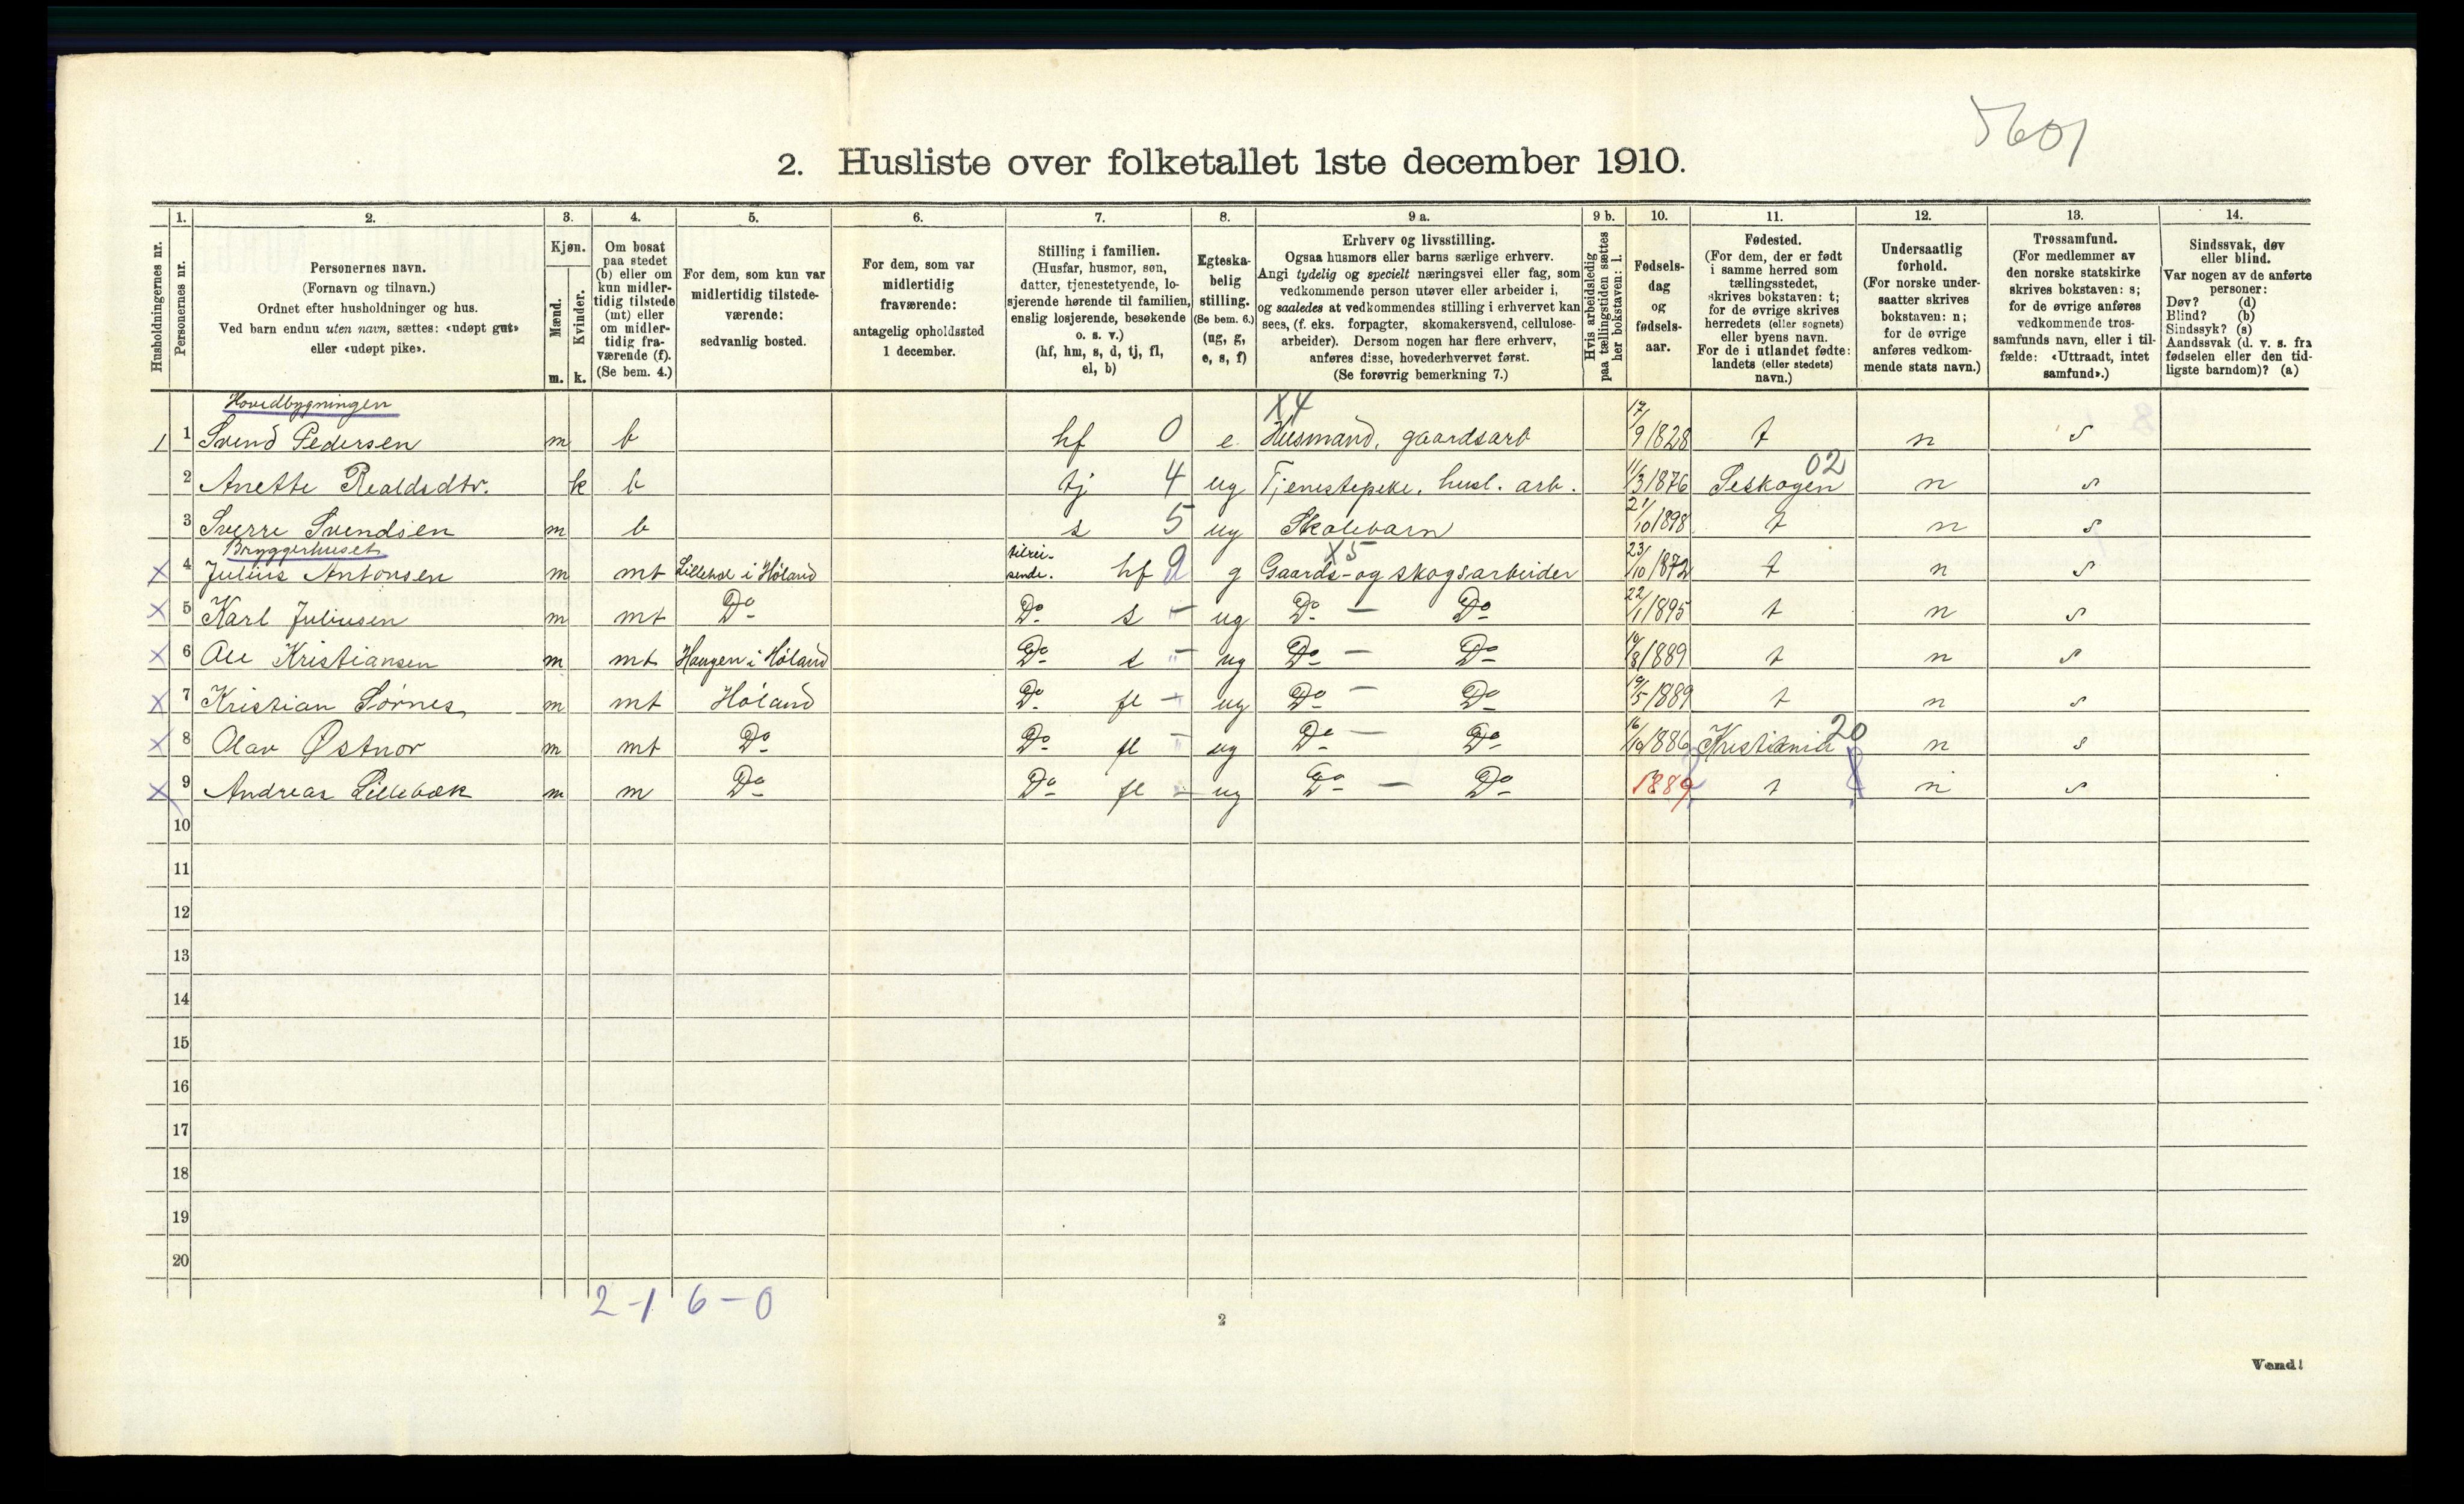 5601
2. Husliste over folketallet 1ste december 1910.
Husholdningernes nr.
1. Personernes nr.
2. Personernes navn. (Fornavn og tilnavn.) Ordnet efter husholdninger og hus. Ved barn endnu uten navn, sættes: «udøpt gut» eller «udøpt pike».
3. Kjøn. Mænd. m. Kvinder. k.
4. Om bosat paa stedet (b) eller om kun midlertidig tilstede (mt) eller om midlertidig fraværende (f). (Se bem. 4.)
5. For dem, som kun var midlertidig tilstedeværende: sedvanlig bosted.
6. For dem, som var midlertidig fraværende: antagelig opholdssted 1 december.
7. Stilling i familien. (Husfar, husmor, søn, datter, tjenestetyende, losjerende hørende til familien, enslig losjerende, besøkende o. s. v.) (hf, hm, s, d, tj, fl, el, b)
8. Egteskabelig stilling. (Se bem. 6.) (ug, g, e, s, f)
9 a. Erhverv og livsstilling. Ogsaa husmors eller barns særlige erhverv. Angi tydelig og specielt næringsvei eller fag, som vedkommende person utøver eller arbeider i, og saaledes at vedkommendes stilling i erhvervet kan sees, (f. eks. forpagter, skomakersvend, cellulosearbeider). Dersom nogen har flere erhverv, anføres disse, hovederhvervet først. (Se forøvrig bemerkning 7.)
9 b. Hvis arbeidsledig paa tællingstiden sættes her bokstaven: l.
10. Fødselsdag og fødselsaar.
11. Fødested. (For dem, der er født i samme herred som tællingsstedet, skrives bokstaven: t; for de øvrige skrives herredets (eller sognets) eller byens navn. For de i utlandet fødte: landets (eller stedets) navn.)
12. Undersaatlig forhold. (For norske undersaatter skrives bokstaven: n; for de øvrige anføres vedkommende stats navn.)
13. Trossamfund. (For medlemmer av den norske statskirke skrives bokstaven: s; for de øvrige anføres vedkommende trossamfunds navn, eller i tilfælde: «Uttraadt, intet samfund».)
14. Sindssvak, døv eller blind. Var nogen av de anførte personer: Døv? (d) Blind? (b) Sindssyk? (s) Aandssvak (d. v. s. fra fødselen eller den tidligste barndom)? (a)
Hovedbygningen X4
1 1 Svend Pedersen m b hf 0 e Husmand, gaardsarb 17/9 1828 t n s
2 Anette Realdsdtr. k b tj 4 ug Tjenestepeke, husl. arb. 11/3 1876 Seskogen 02 n s
3 Sverre Svendsen m b s 5 ug Skolebarn 21/10 1898 t n s
Bryggerhuset X5
X 4 Julius Antonsen m mt i Høland tilreisende. hf 9 g Gaards- og skogsarbeider 23/10 1872 t n s
X 5 Karl Juliusen m mt Do Do s - ug Do - Do 22/1 1895 t n s
X 6 Ole Kristiansen m mt Haugen i Høland Do s - ug Do - Do /8 1889 t n s
X 7 Kristian Sørnes m mt Høland Do fl - ug Do - Do 19/5 1889 t n s
X 8 Olav Østnor m mt Do Do fl - ug Do - Do 16/10 1886 Kristiania 20 n s
X 9 Andreas Lillebæk m m Do Do fl - ug Do - Do 1889 t n s
10
11
12
13
14
15
16
17
18
19
20
2-1 6-0
2
Vend!